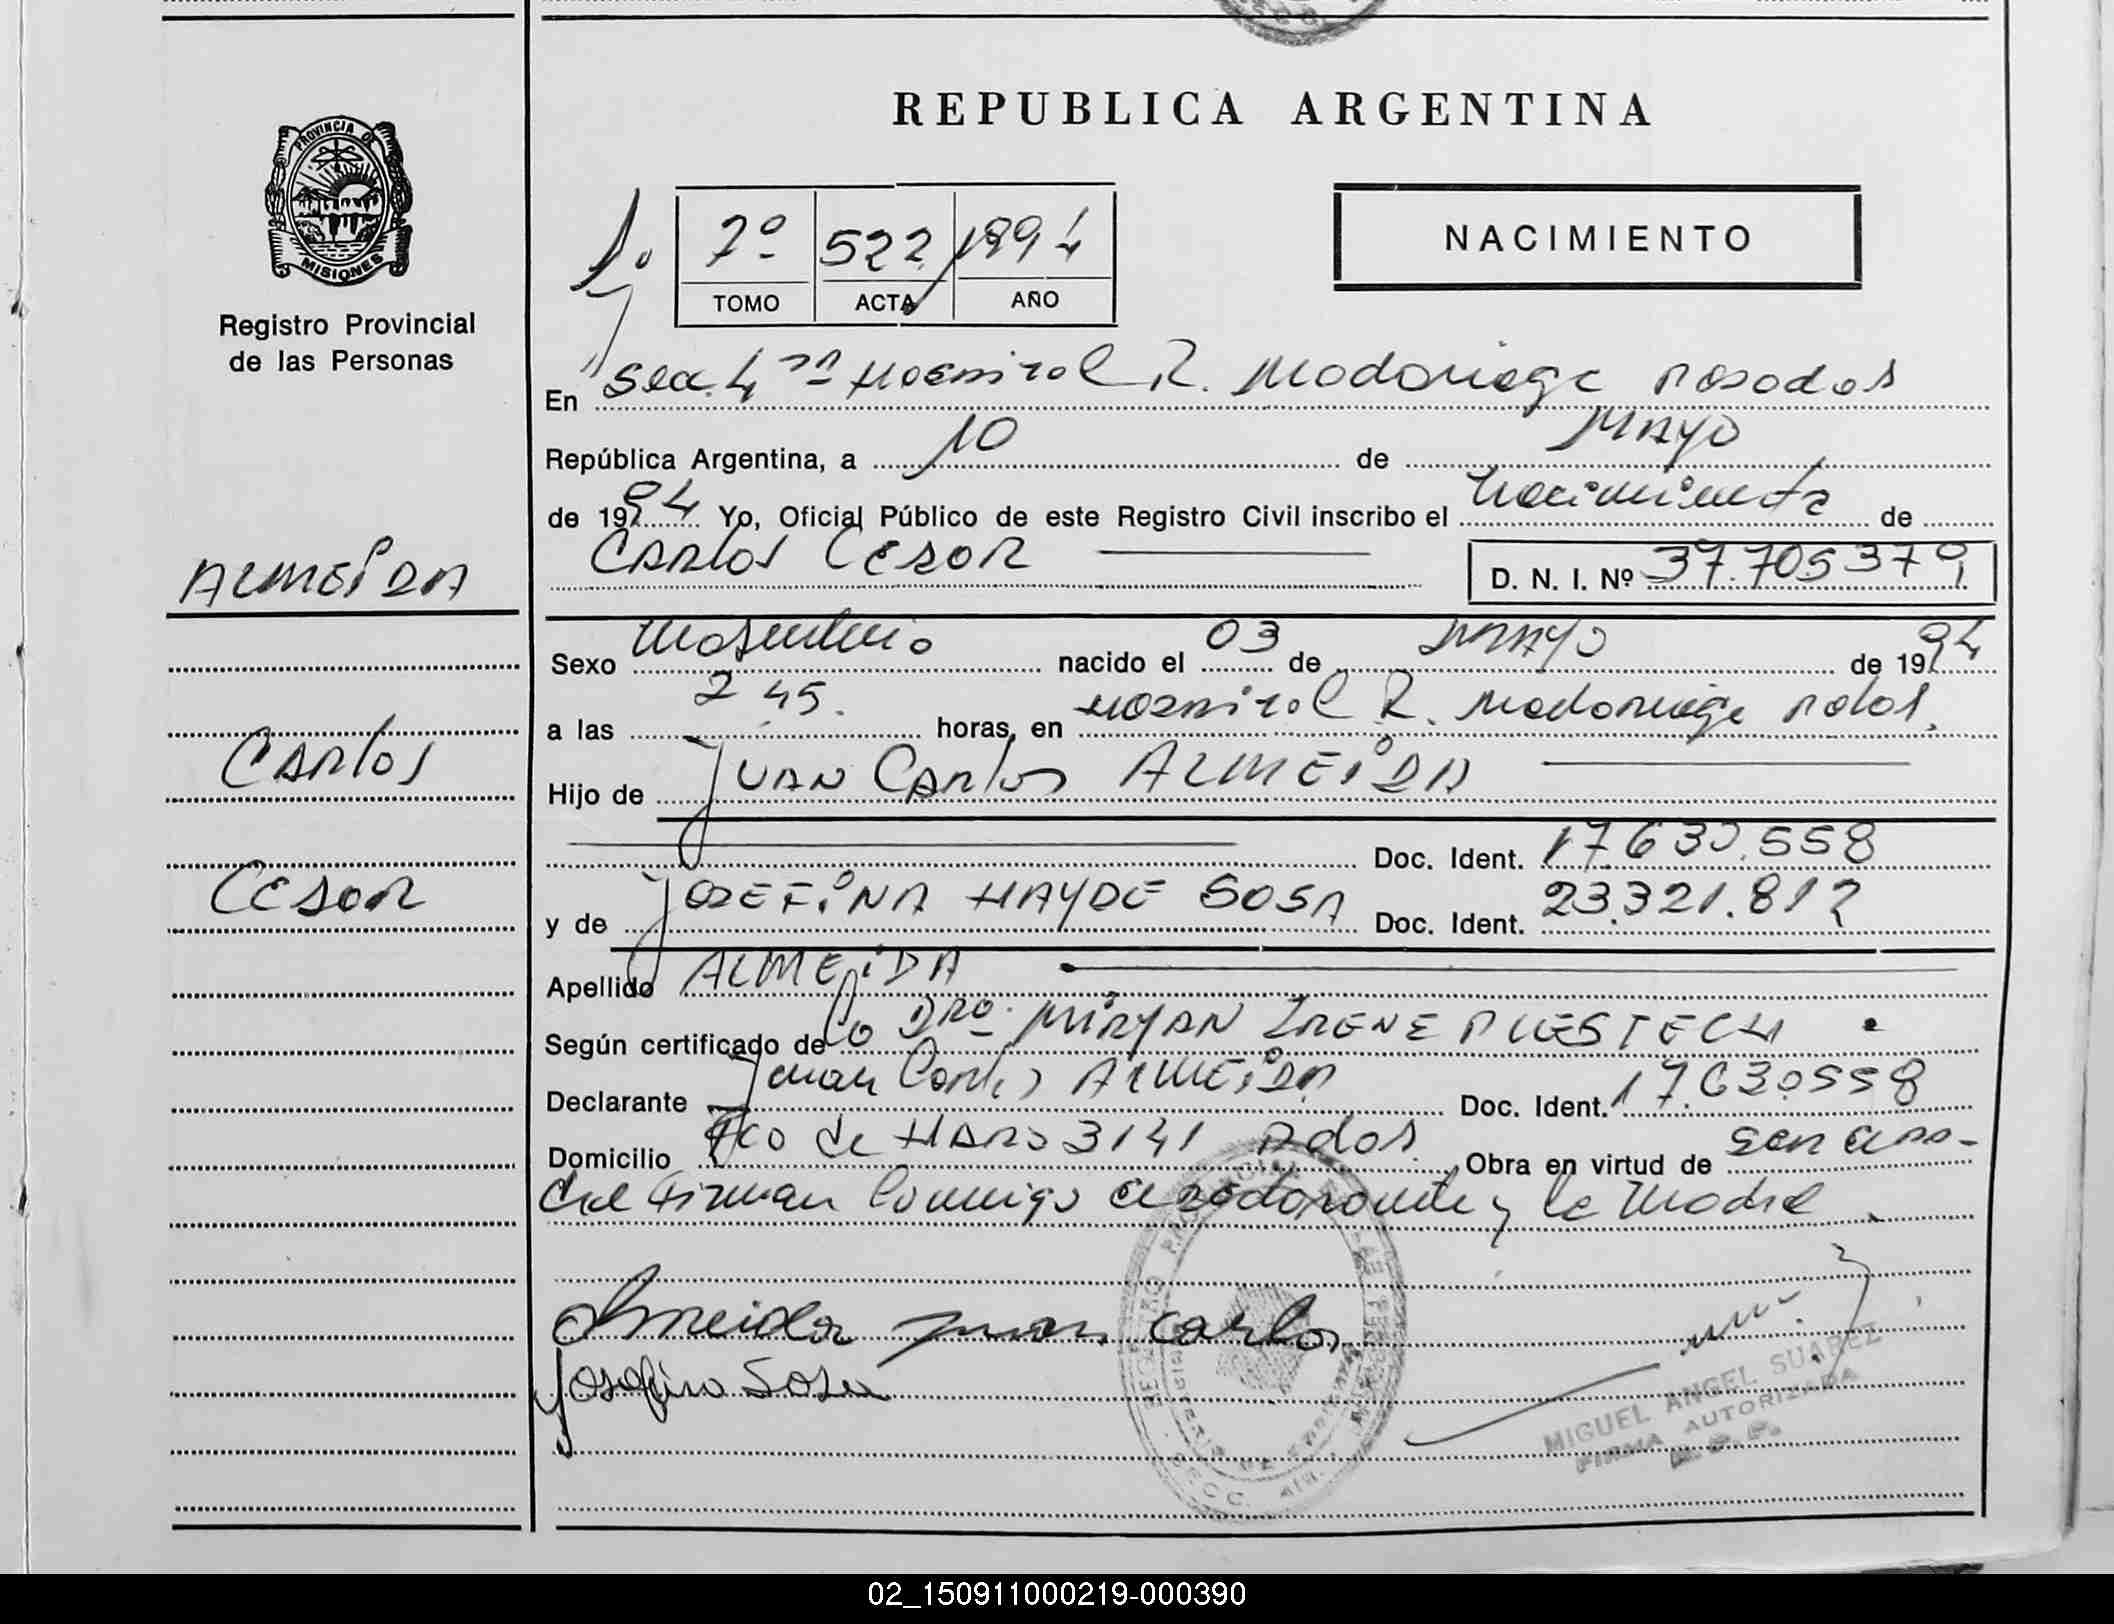 REPUBLICA ARGENTINA
PROVINCIA DE
MISIONES
Registro Provincial
de las Personas
7º 522 1994
TOMO ACTA AÑO
NACIMIENTO
En Secc. 4ta Hospital R. Madariaga Posadas
República Argentina, a 10 de MAYO
de 1994 Yo, Oficial Público de este Registro Civil inscribo el Nacimiento de
CARLOS CESAR D. N. I. Nº 37.705.379
ALMEIDA
CARLOS
CESAR
Sexo Masculino nacido el 03 de MAYO de 1994
a las 2 45. horas, en Hospital R. Madariaga Pdas.
Hijo de JUAN CARLOS ALMEIDA
Doc. Ident. 17.630.558
y de JOSEFINA HAYDE SOSA Doc. Ident. 23.321.812
Apellido ALMEIDA
Según certificado de la Dra. MIRYAN IRENE
Declarante Juan Carlos ALMEIDA Doc. Ident. 17.630.558
Domicilio Fco de HARO 3141 Pdas. Obra en virtud de
firman conmigo y la Madre.
Almeida juan carlos
Josefina Sosa
MIGUEL ANGEL SUAREZ
FIRMA AUTORIZADA
02_150911000219-000390